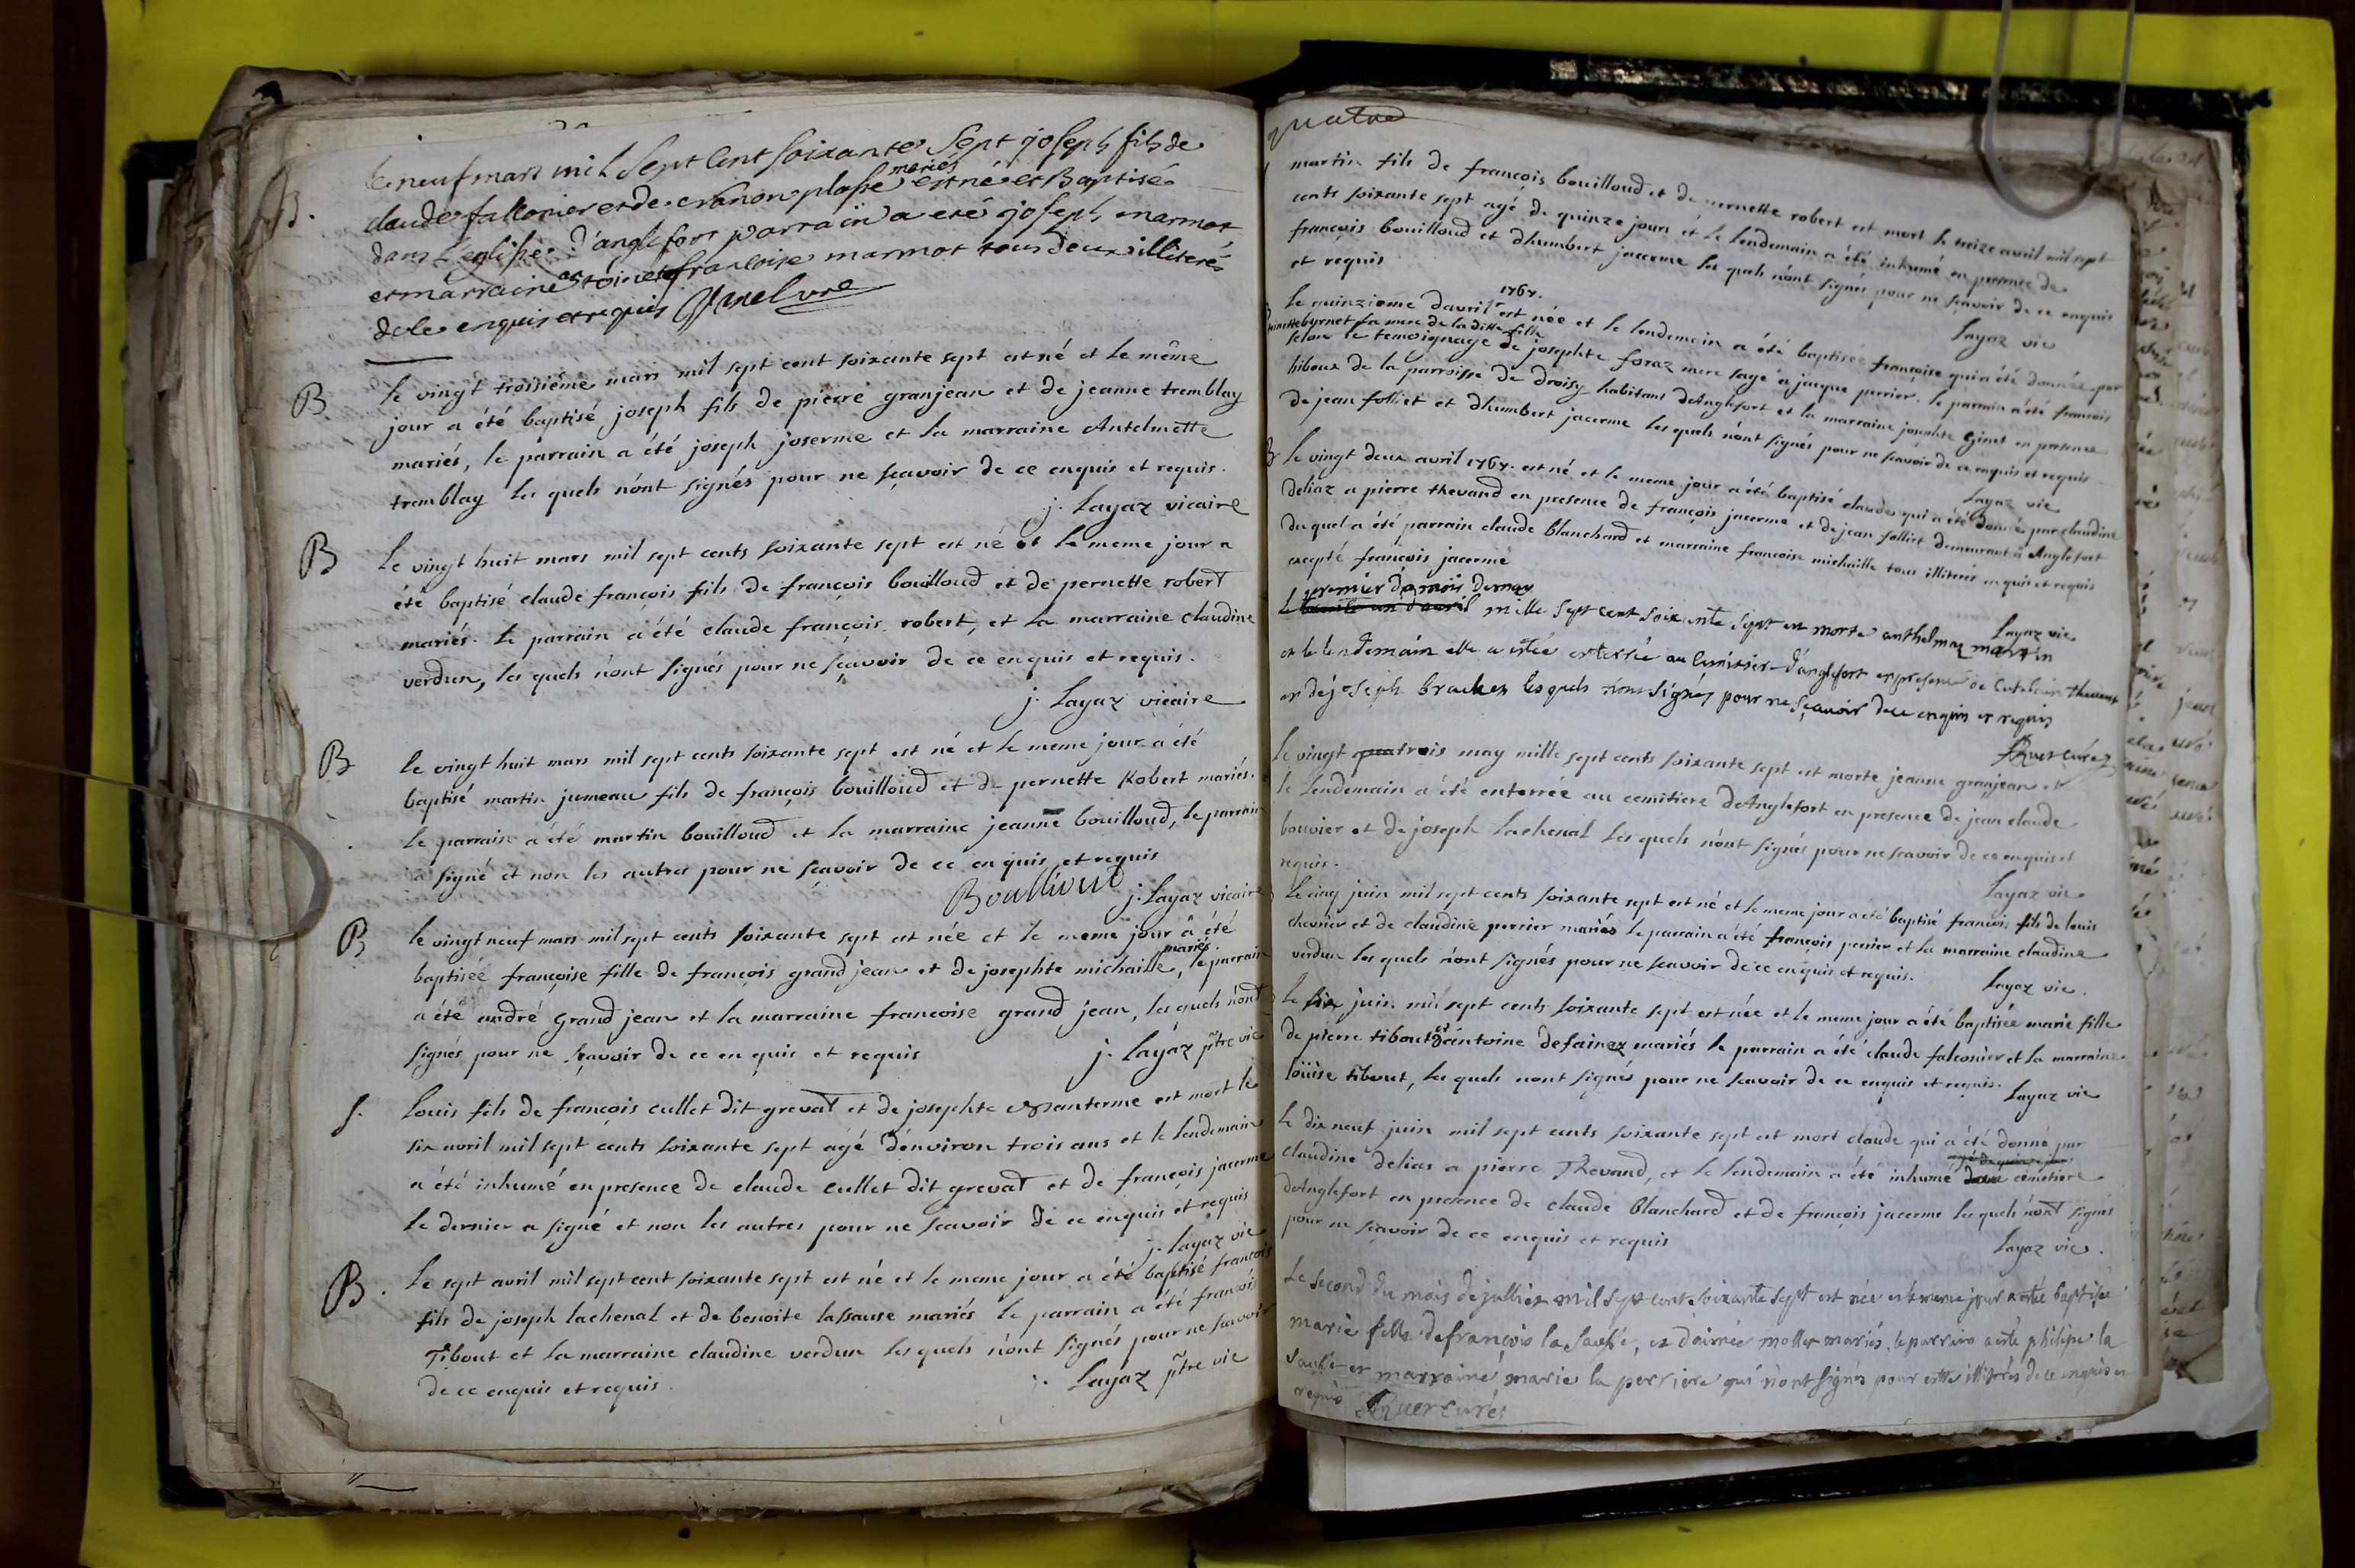 B.
le neuf mars mil Sept Cent Soixante Sept joseph fils de
claude falconier et de plasse mariés est né et Baptisé
dans L'eglise d'anglefort parrain a eté joseph marmot
et marraine antoinette francoise marmot tous deux illiterés
de ce enquis et requis
B
le vingt troisième mars mil sept cent soixante sept est né et le même
jour a été baptisé joseph fils de pierre granjean et de jeanne tremblay
mariés, le parrain a été joseph joserme et la marraine Antelmette
tremblay les quels n'ont signés pour ne sçavoir de ce enquis et requis.
j. Layaz vicaire
B
Le vingt huit mars mil sept cents soixante sept est né et le meme jour a
été baptisé claude françois fils de françois bouilloud et de pernette robert
mariés. le parrain a été claude françois robert, et la marraine claudine
verdun, les quels n'ont signés pour ne sçavoir de ce enquis et requis.
j. Layaz vicaire
B
le vingt huit mars mil sept cents soixante sept est né et le meme jour a été
baptisé martin jumeau fils de françois bouilloud et de pernette Robert mariés.
le parrain a été martin bouilloud et la marraine jeanne bouilloud, le parrain
a signé et non les autres pour ne sçavoir de ce enquis et requis
Boullioud j. Layaz vicaire
B
le vingt neuf mars mil sept cents soixante sept est née et le meme jour a été
baptisée françoise fille de françois grand jean et de josephte michaille, mariés. le parrain
a été andré Grand jean et la marraine francoise grand jean, les quels n'ont
signés pour ne sçavoir de ce en quis et requis j. Layaz ptre vic
S.
Louis fils de françois cullet dit grevat et de josephte est mort le
six avril mil sept cents soixante sept agé d'environ trois ans et le lendemain
a été inhumé en presence de claude cullet dit grevat et de françois jacerme
le dernier a signé et non les autres pour ne sçavoir de ce enquis et requis
j. Layaz vic
B.
Le sept avril mil sept cent soixante sept est né et le meme jour a été baptisé françois
fils de joseph lachenal et de benoite lassause mariés le parrain a été françois
Tibout et la marraine claudine verdun les quels n'ont signés pour ne sçavoir
de ce enquis et requis. j. Layaz ptre vic
quatre
martin fils de françois bouilloud et de pernette robert est mort le treize avril mil sept
cents soixante sept agé de quinze jours et le lendemain a été inhumé en presence de
françois bouilloud et d'humbert jacerme les quels n'ont signés pour ne sçavoir de ce enquis
et requis
Layaz vic
le quinzieme d'avril 1767. est née et le lendemain a été baptisée françoise qui a été donnée par
byrnet la mere de la ditte fille
selon le temoignage de josephte foraz mere sage a jacque perrier. le parrain a été francois
hiboux de la parroisse de droisy habitant d'Anglefort et la marraine josephte Ginet en presence
de jean folliet et d'humbert jacerme les quels n'ont signés pour ne sçavoir de ce enquis et requis
Layaz vic
B
Le vingt deux avril 1767. est né et le meme jour a été baptisé claude qui a été donné par claudine
deliaz a pierre thevand en presence de françois jacerme et de jean folliet demeurant a Anglefort
du quel a été parrain claude blanchard et marraine francoise michaille tous illiterés enquis et requis
excepté francois jacerme
Layaz vic
premier du mois de may
Le trente un d'avril mille sept cent soixante sept est morte anthelmaz martin
et le lendemain elle a estée enterrée au cimitier d'anglefort en presence de thevant
et de joseph bracken les quels n'ont signez pour ne sçavoir de ce enquis et requis
Le vingt trois may mille sept cents soixante sept est morte jeanne granjean et
le lendemain a été enterrée au cemitiere d'Anglefort en presence de jean claude
bouvier et de joseph lachenal les quels n'ont signés pour ne sçavoir de ce enquis et
requis.
Layaz vic
Le cinq juin mil sept cents soixante sept est né et le meme jour a été baptisé francois fils de louis
chevrier et de claudine perrier mariés le parrain a été françois perrier et la marraine claudine
verdun les quels n'ont signés pour ne sçavoir de ce enquis et requis.
Layaz vic.
Le six juin mil sept cents soixante sept est née et le meme jour a été baptisée marie fille
de pierre tibout et d'antoine defainez mariés le parrain a été claude falconier et la marraine
loüise tibout, les quels n'ont signés pour ne sçavoir de ce enquis et requis.
Layaz vic
Le dix neuf juin mil sept cents soixante sept est mort claude qui a été donné par
claudine delias a pierre Thevand, et le lendemain a été inhumé cemetiere
d'Anglefort en presence de claude blanchard et de françois jacerme les quels n'ont signés
pour ne sçavoir de ce enquis et requis
Layaz vic.
Le second du mois de julliet mil sept cent soixante sept est née et le meme jour a estée baptisée
marie fille de françois la Sausse, et d'aimée mottet mariés, le parrain a esté philipe la
Sausse et marraine marie la perriere qui n'ont signés pour estre illiterés de ce enquis et
requis